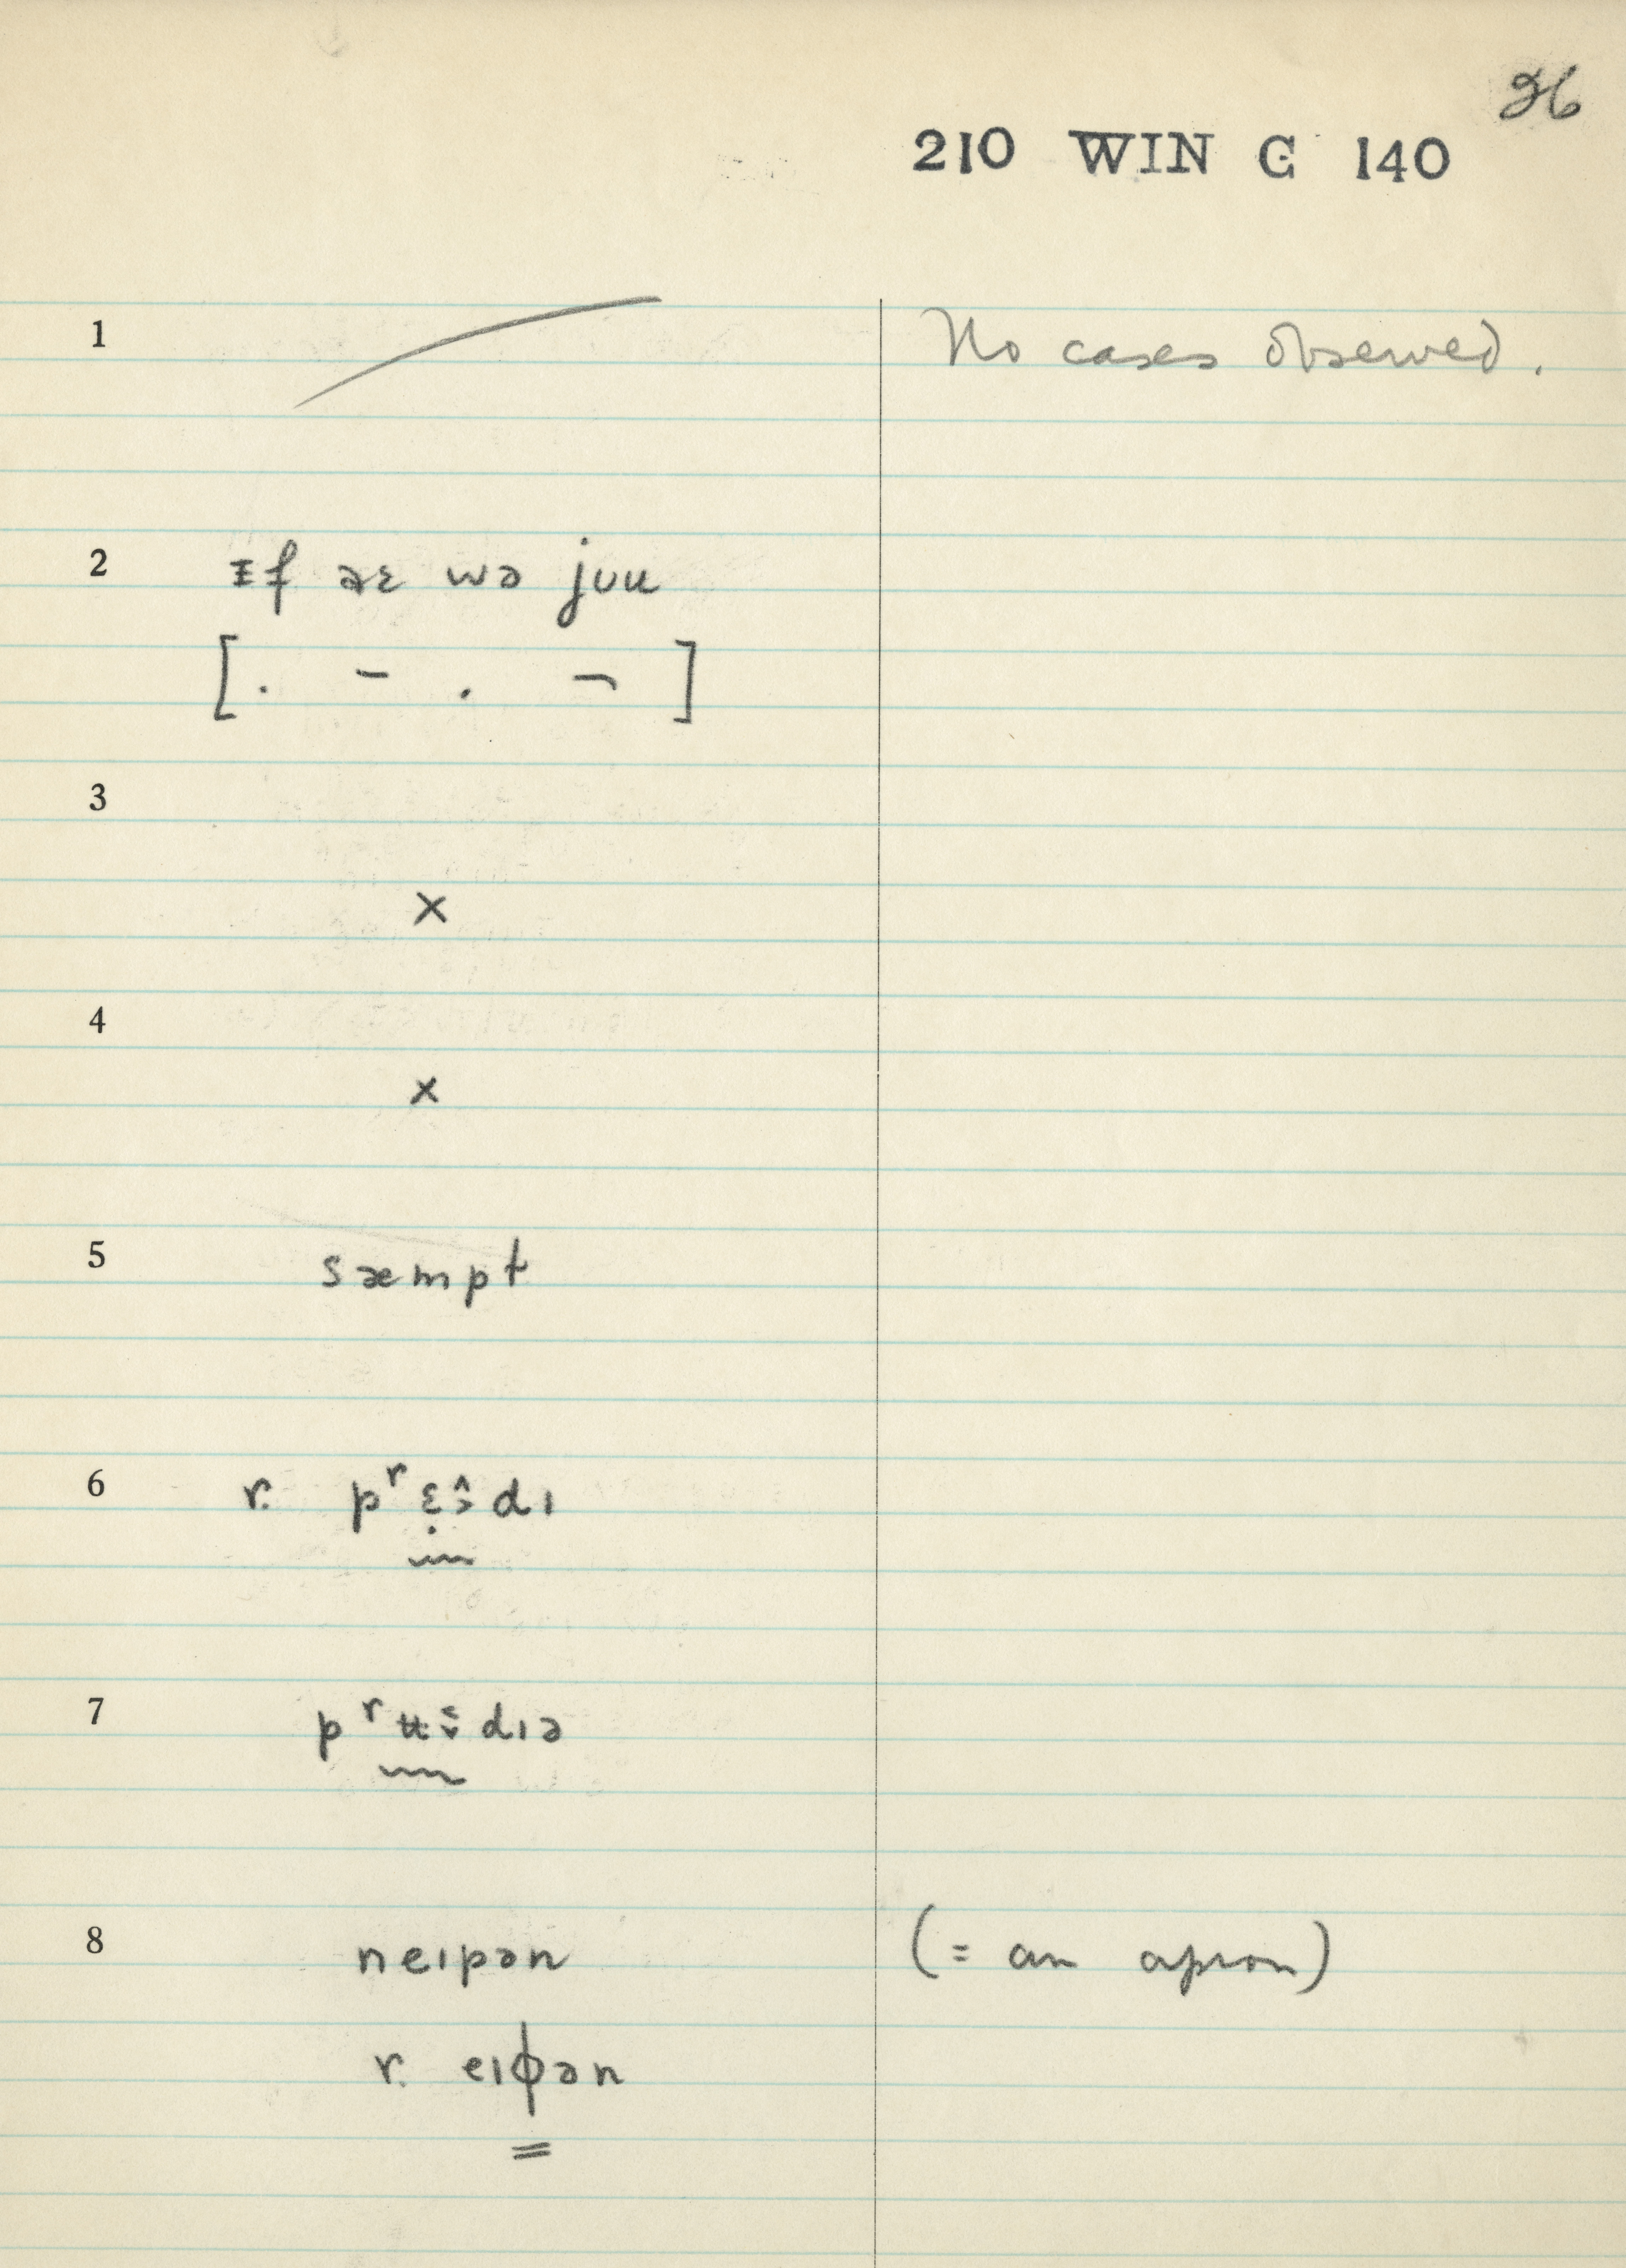 26
210 WIN C 140
1 No cases observed.
2 ᵻf əɛ wə jʊu
[. – . ¬ ]
3
×
4
×
5 sæmpt
6 r. pʳɛ̣ə̂dɪ
7 pʳʉədɪə
8 neɪpən (= an apron)
r. eɪɸən
=